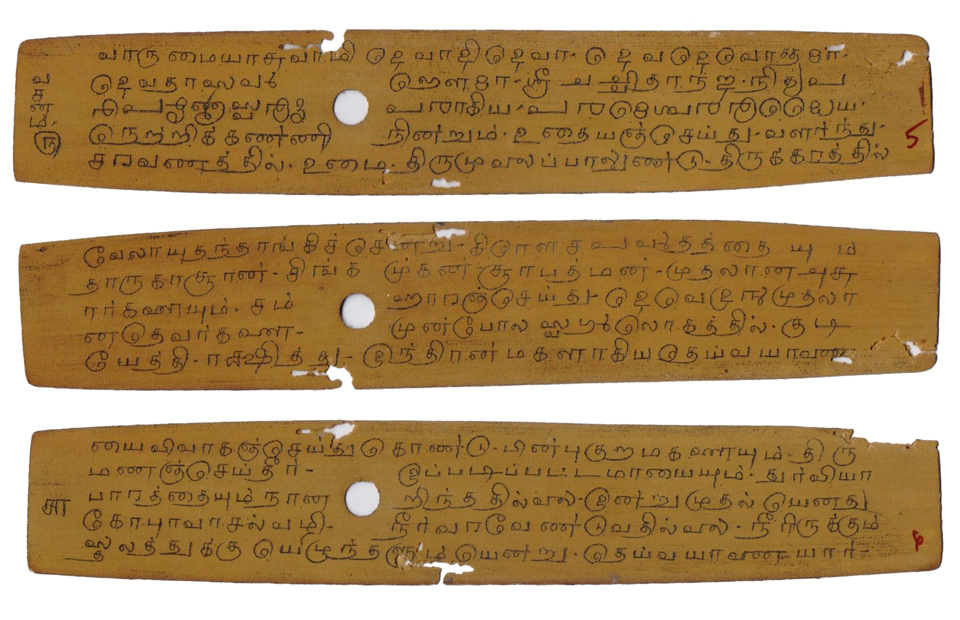 வாரு மையாசுவாமி தெவாதிதெவா. தெவதெவொத்தமா.
வசனம்.
ஶ்ரீ சச்சிதாநந்த. நித்ய
பராகிய. பரமெஸ்வரனுடைய.
நெற்றிக்கண்ணி நின்றும். உதையஞ்செய்து. வளர்ந்து. 5
சரவணத்தில். உமை. திருமுலைப்பாலுண்டு. திருக்கரத்தில்
வேலாயுதந்தாங்கிச்சென்று. பர்வதத்தை யும்
தாருகாசூரன். சிங்க முகன் சூரபத்மன். முதலான அசுர
ர்களையும். சம் ஹாரஞ்செய்து- தெவெந்திரமுதலா
னதெவர்களை- முன்போல ஸ்வர்லொகத்தில். குடி
யேத்தி. ரக்ஷித்து- இந்திரன் மகளாகிய தெய்வயானை
யைவிவாகஞ்செய்துகொண்டு. பின்புகுறமகளையும். திரு
மணஞ்செய்தீர்- இப்படிப்பட்ட மாயையும். துர்வியா
பாரத்தையும் நான றிந்ததில்லை. இன்றுமுதல் யெனது
கோபுரவாசல்வழி- நீர்வரவேண்டுவதில்லை. நீரிருக்கும்
ஸ்தலத்துக்கு யெழுந்தருளும் யென்று. தெய்வயானையார்- 6